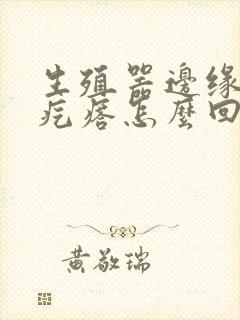 生殖器邊緣
疙瘩怎麼回
黃敬瑞